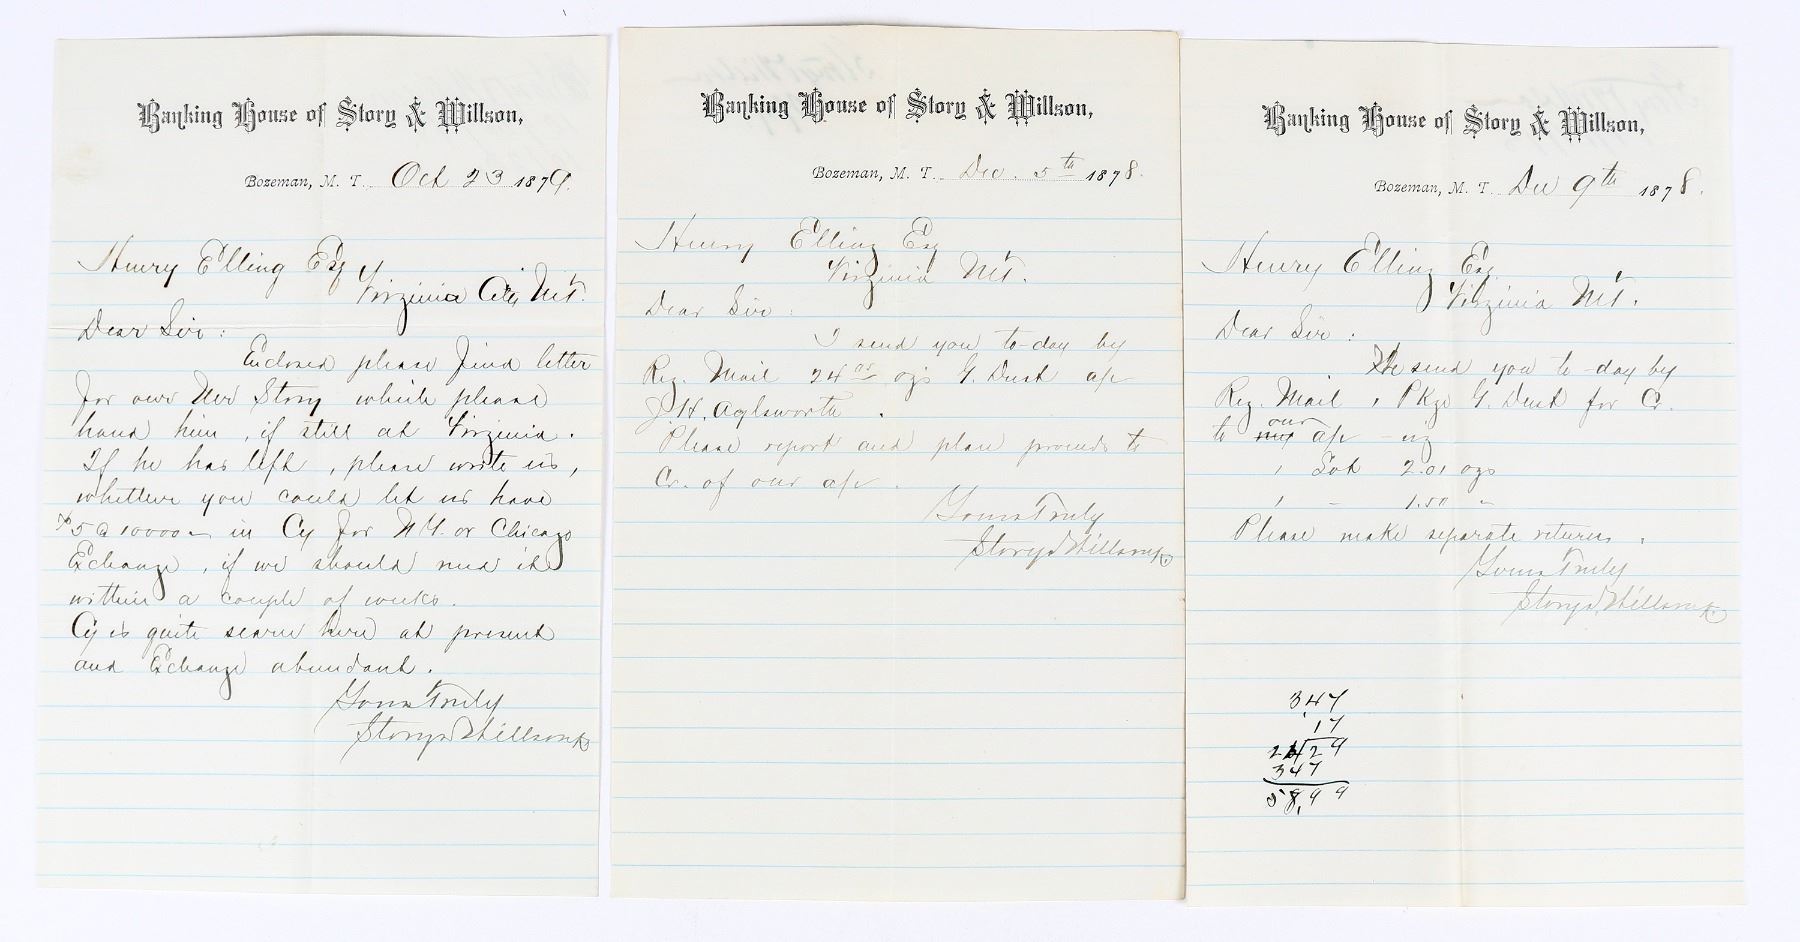 Banking House of Story & Willson,
Bozeman, M. T. Oct 23 1879.
Henry Elling Esq
Virginia City Mt.
Dear Sir:
Enclosed please find letter
for our Mr Story which please
hand him, if still at Virginia.
If he has left, please write us,
whether you could let us have
$5 @ 10000 - in Cy for N.Y. or Chicago
Exchange, if we should need it
within a couple of weeks.
Cy is quite scarce here at present
and Exchange abundant.
Yours Truly
Story & Willson
Banking House of Story & Willson,
Bozeman, M. T. Dec. 5th 1878.
Henry Elling Esq
Virginia Mt.
Dear Sir:
I send you to-day by
Reg. Mail 24 ozs G. Dust a/c
J. H. Aylsworth.
Please report and place proceeds to
Cr. of our a/c.
Yours Truly
Story & Willson
Banking House of Story & Willson,
Bozeman, M. T. Dec 9th 1878.
Henry Elling Esq
Virginia Mt.
Dear Sir:
We send you to-day by
Reg. Mail 1 Pkge G. Dust for Cr.
to my our a/c - viz
1 Lot 2.01 ozs
1 - 1.50 "
Please make separate returns.
Yours Truly
Story & Willson
347
17
2429
347
58,99